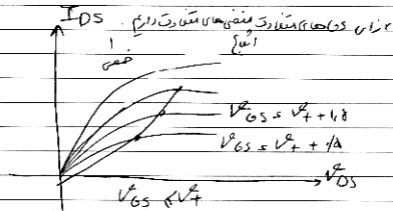 I_DS برای vGS های متفاوت منحنی های متفاوت داریم.
اشباع
خطی
V_GS = V_t + 1,5
V_GS = V_t + 1/5
V_DS
V_GS ≤ V_t